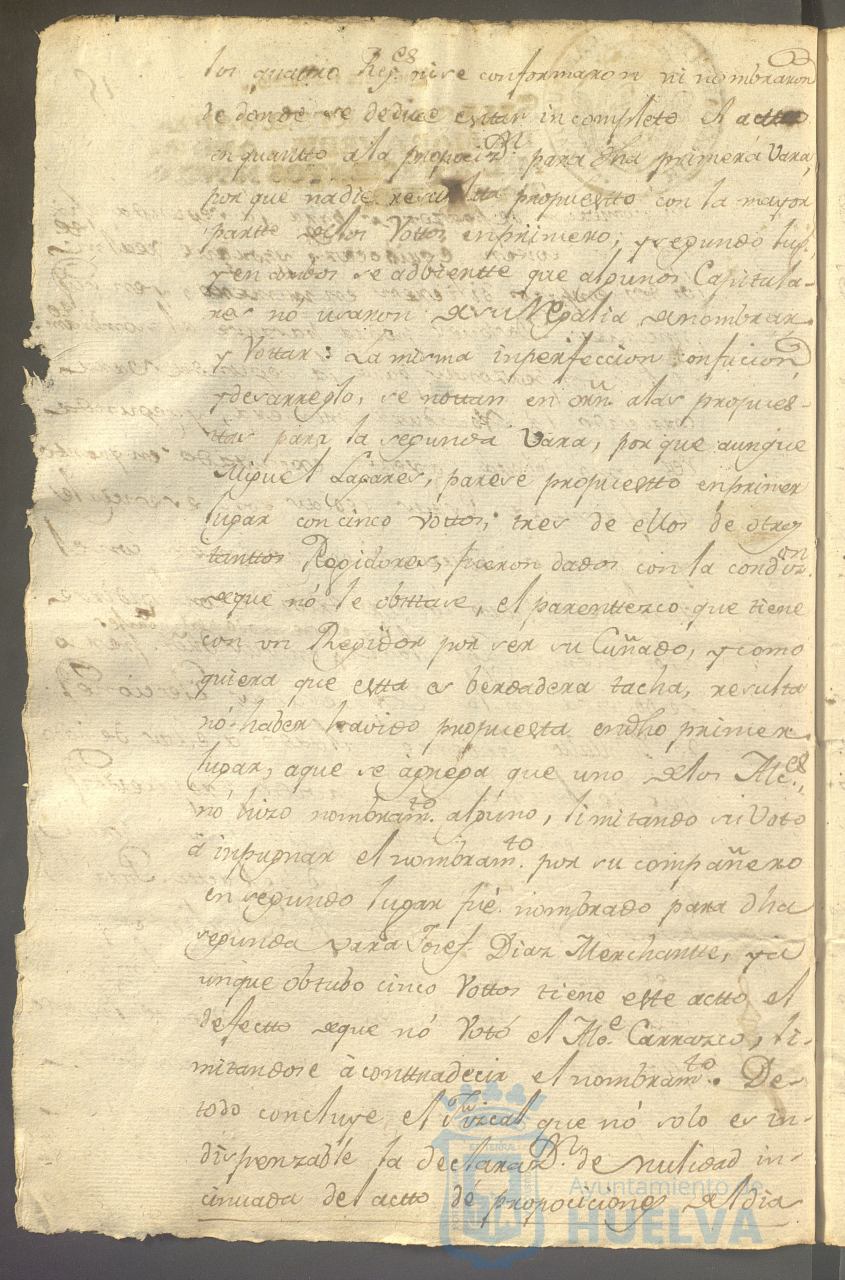 los quatro Reg.es ni se conformaron ni nombraron
de donde se deduce estar incompleto el actto
en quantto ala proposiz.on para dha primera Vara,
por que nadie resulta propuestto con la mayor
partte delos Vottos enprimero, y segundo lug.r
y en ambos se adbiertte que algunos Capitula-
res no usaron desu Regalia denombrar
y Vottar: La misma inperfeccion confucion
y desarreglo, se nottan en orn. alas propues-
ttas para la segunda Vara, por que aunque
Miguel Lagares, parese propuestto enprimer
lugar con cinco Vottos, tres de ellos de otros
tanttos Regidores, fueron dados con la condiz.on
deque nó le obsttase, el parenttezco que tiene
con un Regidor por ser su Cuñado, y como
quiera que estta es berdadera tacha, resulta
nó haber havido propuesta endho primer
lugar, aque se agrega que uno delos Alc.es
nó hizo nombram.to alguno, limitando su Voto
á inpugnar el nombram.to por su compañero
en segundo lugar fué nombrado para dha
segunda vara Josef Diaz Merchantte, y a
unque obtubo cinco Vottos tiene este actto el
defectto deque nó Votó el Alc.e Carrasco, li-
mitandose á conttradecir el nombram.to. De
todo concluye el Fiscal que nó solo es in-
dispenzable la declaraz.on de nulidad in-
cinuada del actto de proposiciones del dia
Ayuntamiento de
HUELVA